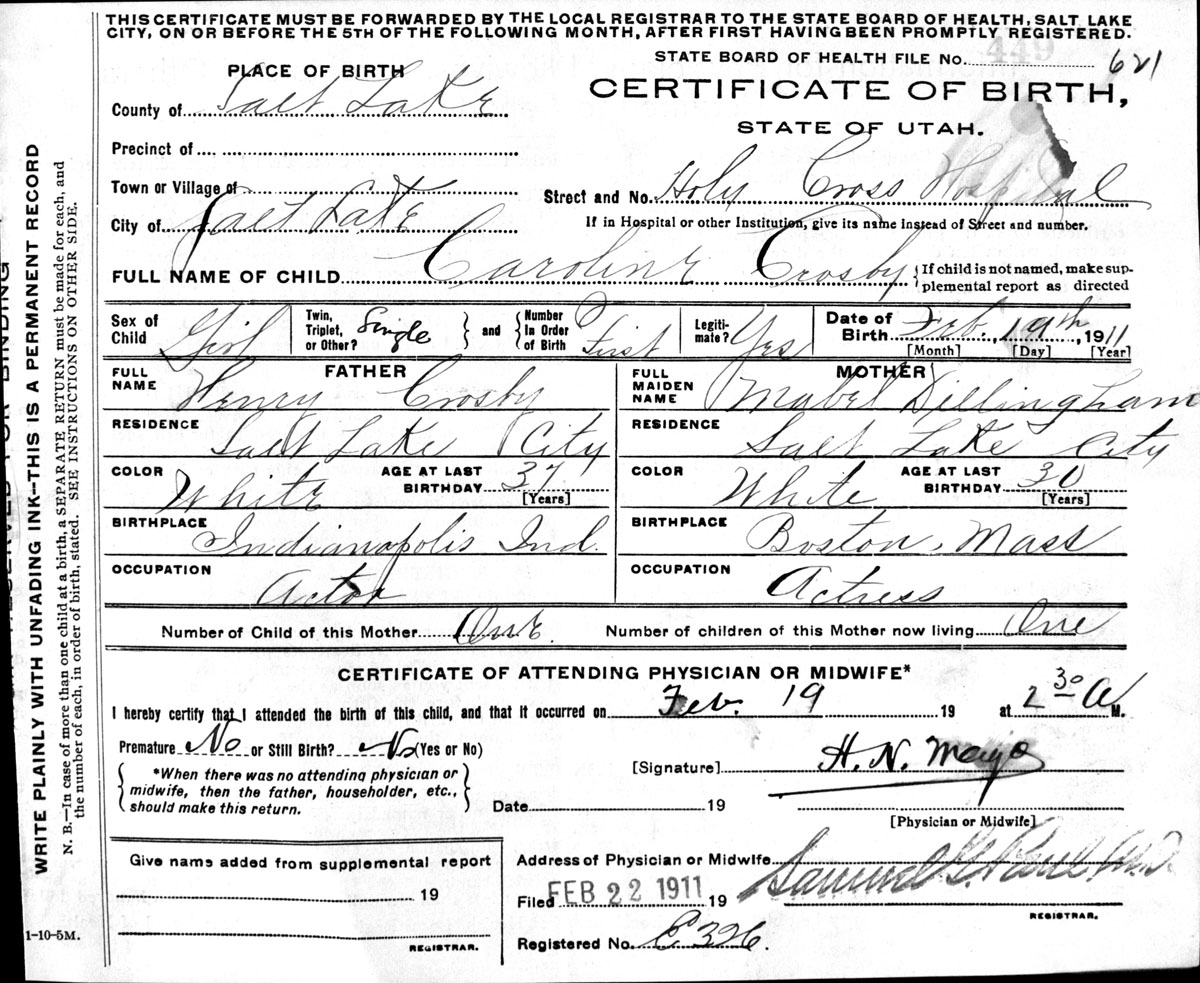 THIS CERTIFICATE MUST BE FORWARDED BY THE LOCAL REGISTRAR TO THE STATE BOARD OF HEALTH, SALT LAKE
CITY, ON OR BEFORE THE 5TH OF THE FOLLOWING MONTH, AFTER FIRST HAVING BEEN PROMPTLY REGISTERED.
449
STATE BOARD OF HEALTH FILE NO. 621
PLACE OF BIRTH
CERTIFICATE OF BIRTH,
STATE OF UTAH.
County of Salt Lake
Precinct of
Town or Village of
Street and No. Holy Cross Hospital
City of Salt Lake
If in Hospital or other Institution, give its name instead of Street and number.
FULL NAME OF CHILD Caroline Crosby { If child is not named, make sup-
plemental report as directed
Sex of Child Girl
Twin, Triplet, or Other? Single } and { Number In Order of Birth First
Legiti-mate? Yes
Date of Birth Feb. 19th, 1911
[Month] [Day] [Year]
FATHER
MOTHER
FULL NAME Henry Crosby
FULL MAIDEN NAME Mabel Dillingham
RESIDENCE Salt Lake City
RESIDENCE Salt Lake City
COLOR White AGE AT LAST BIRTHDAY 37 [Years]
COLOR White AGE AT LAST BIRTHDAY 30 [Years]
BIRTHPLACE Indianapolis Ind.
BIRTHPLACE Boston, Mass
OCCUPATION Actor
OCCUPATION Actress
Number of Child of this Mother One. Number of children of this Mother now living One
CERTIFICATE OF ATTENDING PHYSICIAN OR MIDWIFE*
I hereby certify that I attended the birth of this child, and that it occurred on Feb. 19 19 at 2 30 A M.
Premature No or Still Birth? No (Yes or No)
{ *When there was no attending physician or
midwife, then the father, householder, etc.,
should make this return. }
[Signature] H. N. Mayo
Date 19
[Physician or Midwife]
Give name added from supplemental report
19
REGISTRAR.
Address of Physician or Midwife
Filed FEB 22 1911 19 Samuel G. Paul M.D.
REGISTRAR.
Registered No. E326.
1-10-5M.
WRITE PLAINLY WITH UNFADING INK—THIS IS A PERMANENT RECORD
N. B.—In case of more than one child at a birth, a SEPARATE RETURN must be made for each, and
the number of each, in order of birth, stated. SEE INSTRUCTIONS ON OTHER SIDE.